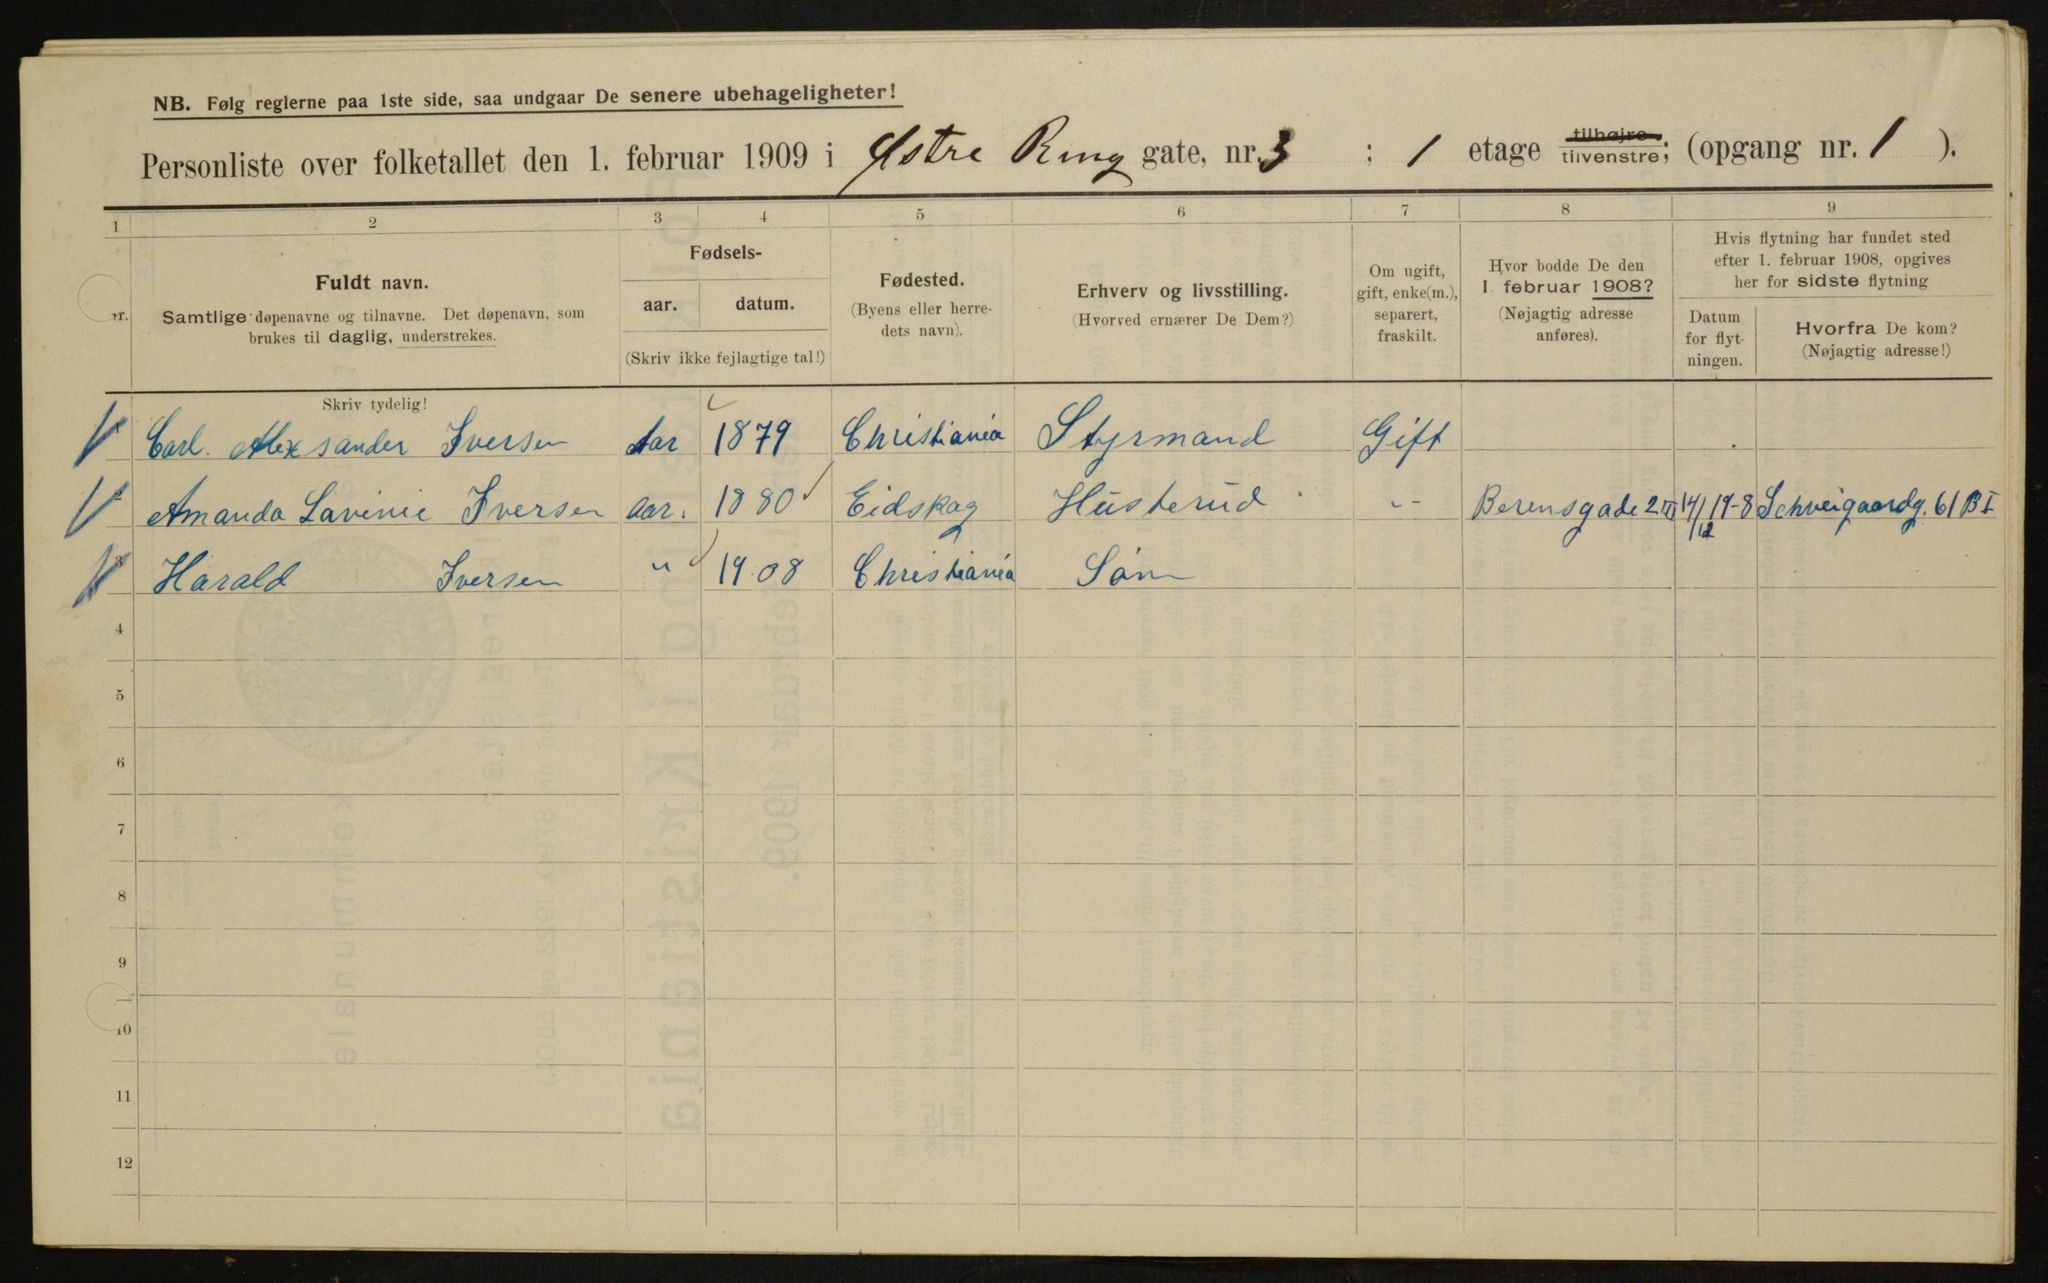 NB. Følg reglerne paa 1ste side, saa undgaar De senere ubehageligheter!
Personliste over folketallet den 1. februar 1909 i Østre Ring gate, nr. 3 ; 1 etage tilhøjre tilvenstre; (opgang nr. 1 ).
1 2 3 4 5 6 7 8 9
nr.
Fuldt navn.
Samtlige døpenavne og tilnavne. Det døpenavn, som
brukes til daglig, understrekes.
Skriv tydelig!
Fødsels-
aar. datum.
(Skriv ikke fejlagtige tal!)
Fødested.
(Byens eller herre-
dets navn).
Erhverv og livsstilling.
(Hvorved ernærer De Dem?)
Om ugift,
gift, enke(m.),
separert,
fraskilt.
Hvor bodde De den
1. februar 1908?
(Nøjagtig adresse
anføres).
Hvis flytning har fundet sted
efter 1. februar 1908, opgives
her for sidste flytning
Datum
for flyt-
ningen.
Hvorfra De kom?
(Nøjagtig adresse!)
Carl. Alexsander Iversen Aar 1879 Christiania Styrmand Gift
Amanda Lavinie Iversen Aar. 1880 Eidskog Husterud -- Berensgade 2 III 14/12 19-8 Schveigaardg. 61 B I
Harald Iversen " 1908 Christiania Søn
4
5
6
7
8
9
10
11
12